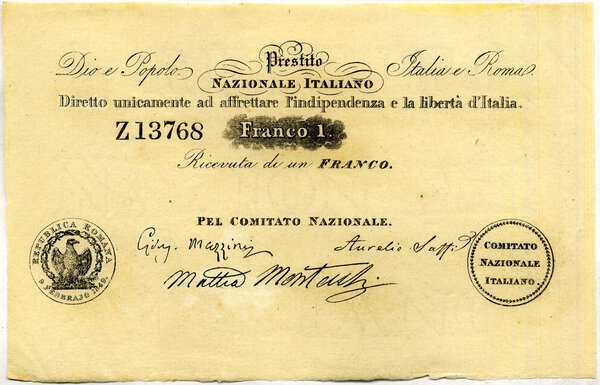 Prestito
Dio e Popolo.
Italia e Roma.
NAZIONALE ITALIANO
Diretto unicamente ad affrettare l'indipendenza e la libertà d'Italia.
Z13768
Franco 1.
Ricevuta di un FRANCO.
PEL COMITATO NAZIONALE.
Gius. Mazzini
Aurelio Saffi
Mattia Montecchi
REPUBBLICA ROMANA
9 FEBBRAJO 1849.
COMITATO
NAZIONALE
ITALIANO.